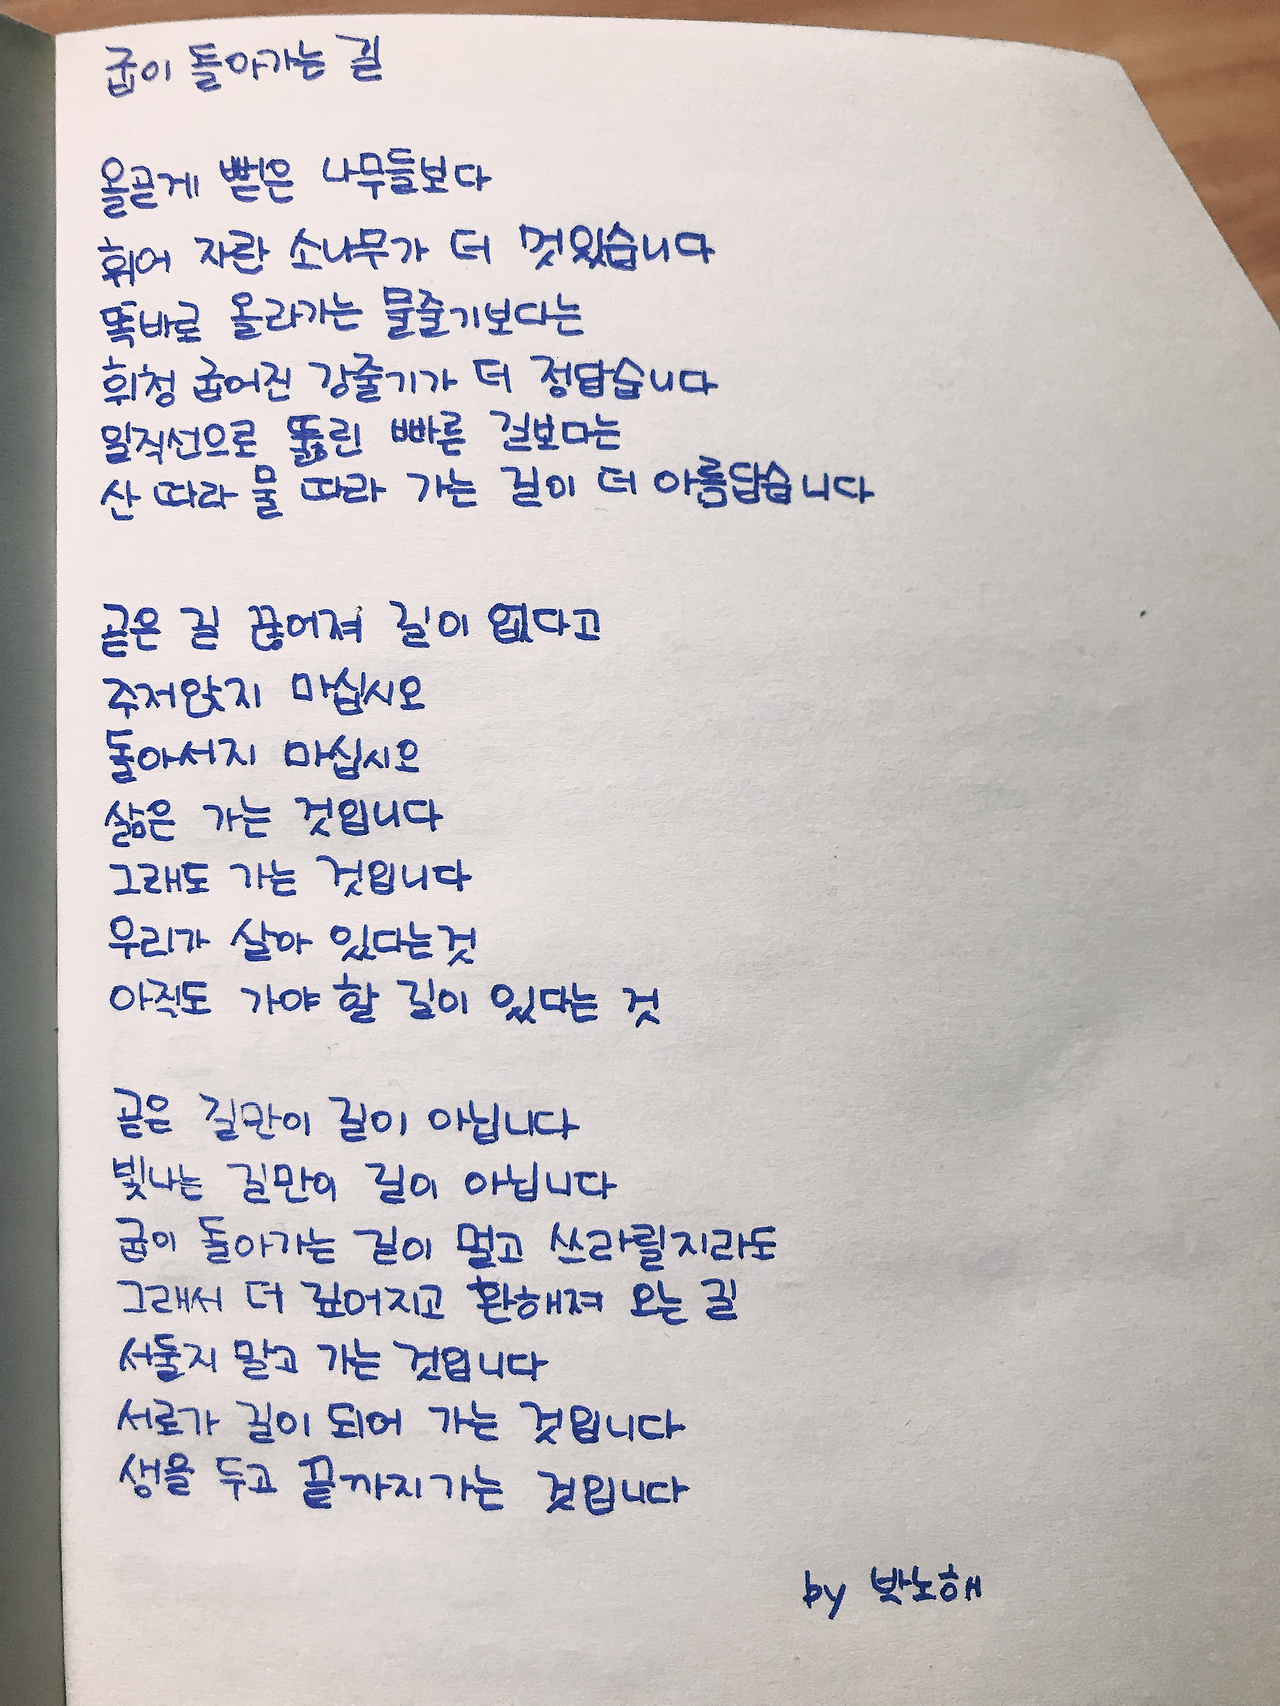 굽이 돌아가는 길
올곧게 뻗은 나무들보다
휘어 자란 소나무가 더 멋있습니다
똑바로 올라가는 물줄기보다는
휘청 굽어진 강줄기가 더 정답습니다
일직선으로 뚫린 빠른 길보다는
산 따라 물 따라 가는 길이 더 아름답습니다
곧은 길 끊어져 길이 없다고
주저앉지 마십시오
돌아서지 마십시오
삶은 가는 것입니다
그래도 가는 것입니다
우리가 살아 있다는것
아직도 가야 할 길이 있다는 것
곧은 길만이 길이 아닙니다
빛나는 길만이 길이 아닙니다
굽이 돌아가는 길이 멀고 쓰라릴지라도
그래서 더 깊어지고 환해져 오는 길
서둘지 말고 가는 것입니다
서로가 길이 되어 가는 것입니다
생을 두고 끝까지가는 것입니다
by 박노해